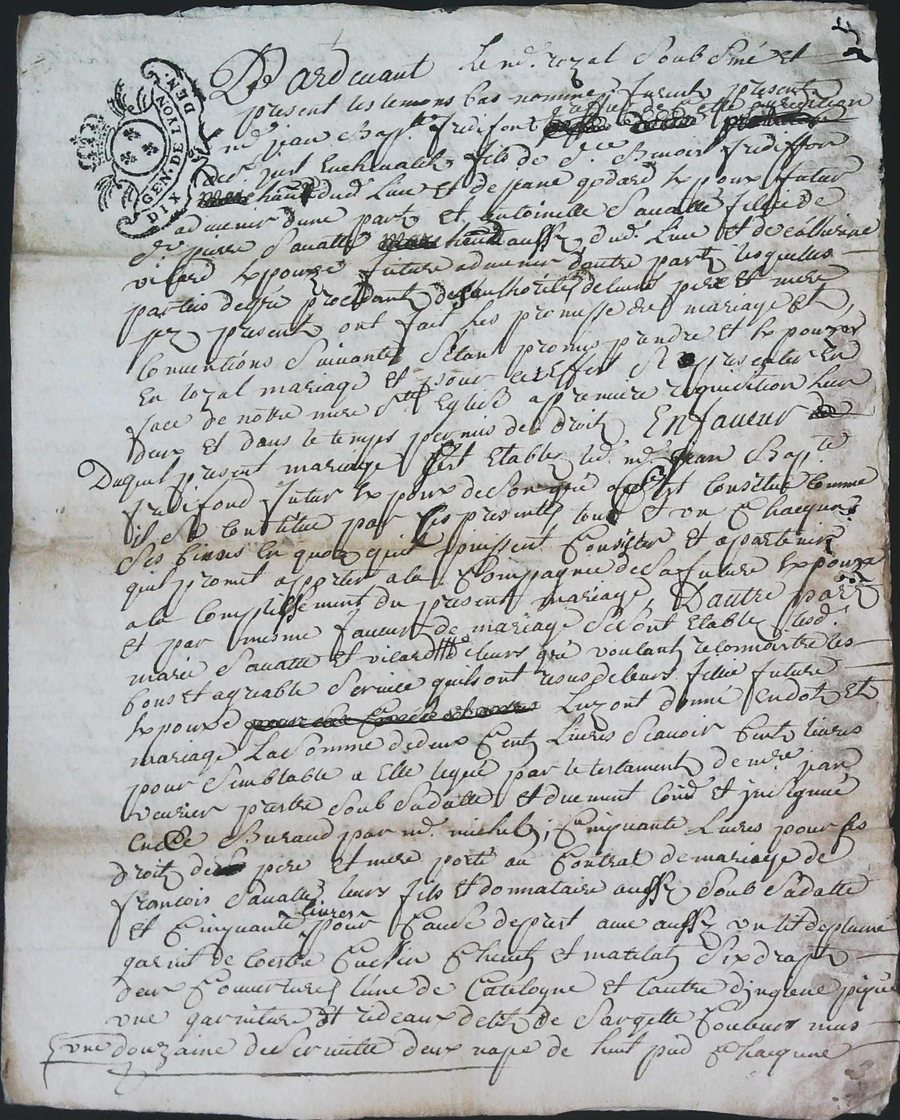 GEN. DE LYON
DIX DEN.
Pardevant Le no.e royal Soub Siné et
present les temoins bas nommés furent present
me jean Bap.te fredifont
fils de S.r Benoit fredeffon
hand dud. Lieu et de jeane godard Expoux futur
advenir d'une part et Antoinette Savatte fillie de
Savatte aussy dud. Lieu et de catherine
vilard Expouze future advenir d'autre part lesquelles
parties de gré procedant de l'authorité de leurs pere et mere
icy present ont fait les promesse de mariage et
Conventions Suivantes Sétant promis prendre et Expouzer
En loyal mariage et pour cet Effet Se presenter En
face de notre mere S.te Eglise a premiere requisition lun
deux et dans le temps permis de droit En faveur
Duquel present mariage Sest Etablit led. me jean Bap.te
fredifond futur Expoux de Son gré Constitué Comme
il se Constitue par les presentes tous et un Chacuns
Ses biens En quoy quil puissent Consister et appartenir
quil promit apporter a la Compagnie de Sa future Expouze
a la Complissement du present mariage, Dautre part
et par mesme faveur de mariage Se sont Etablis lesd.
marié Savatte et vilard de leurs gré voulant reconnoitre les
bons et agreable Service quils ont resus de leurs fillie future
Expouze Luy ont donné En dot et
mariage La Somme de deux Cent Livres Scavoir Cent livres
pour Semblable a Elle legué par le testament de m.re jean
prestre Soub Sa datte et duement Con.é et insignué
Buraud par me. michel, Cinquante Livres pour ses
droit de pere et mere porté au Contrat de mariage de
françois Savatte leurs fils et donnataire aussy Soub Sa datte
et Cinquante livres pour Cause de prest avec aussy un lit de plume
garnit de Coestre Cuessin Chevet et matelat Six drapt
deux Couvertures lune de Catelogne et lautre piqué
une garniture et rideaux de lit de Sargette Couleurs
une douzaine de Serviette deux nape de huit pied Chacune